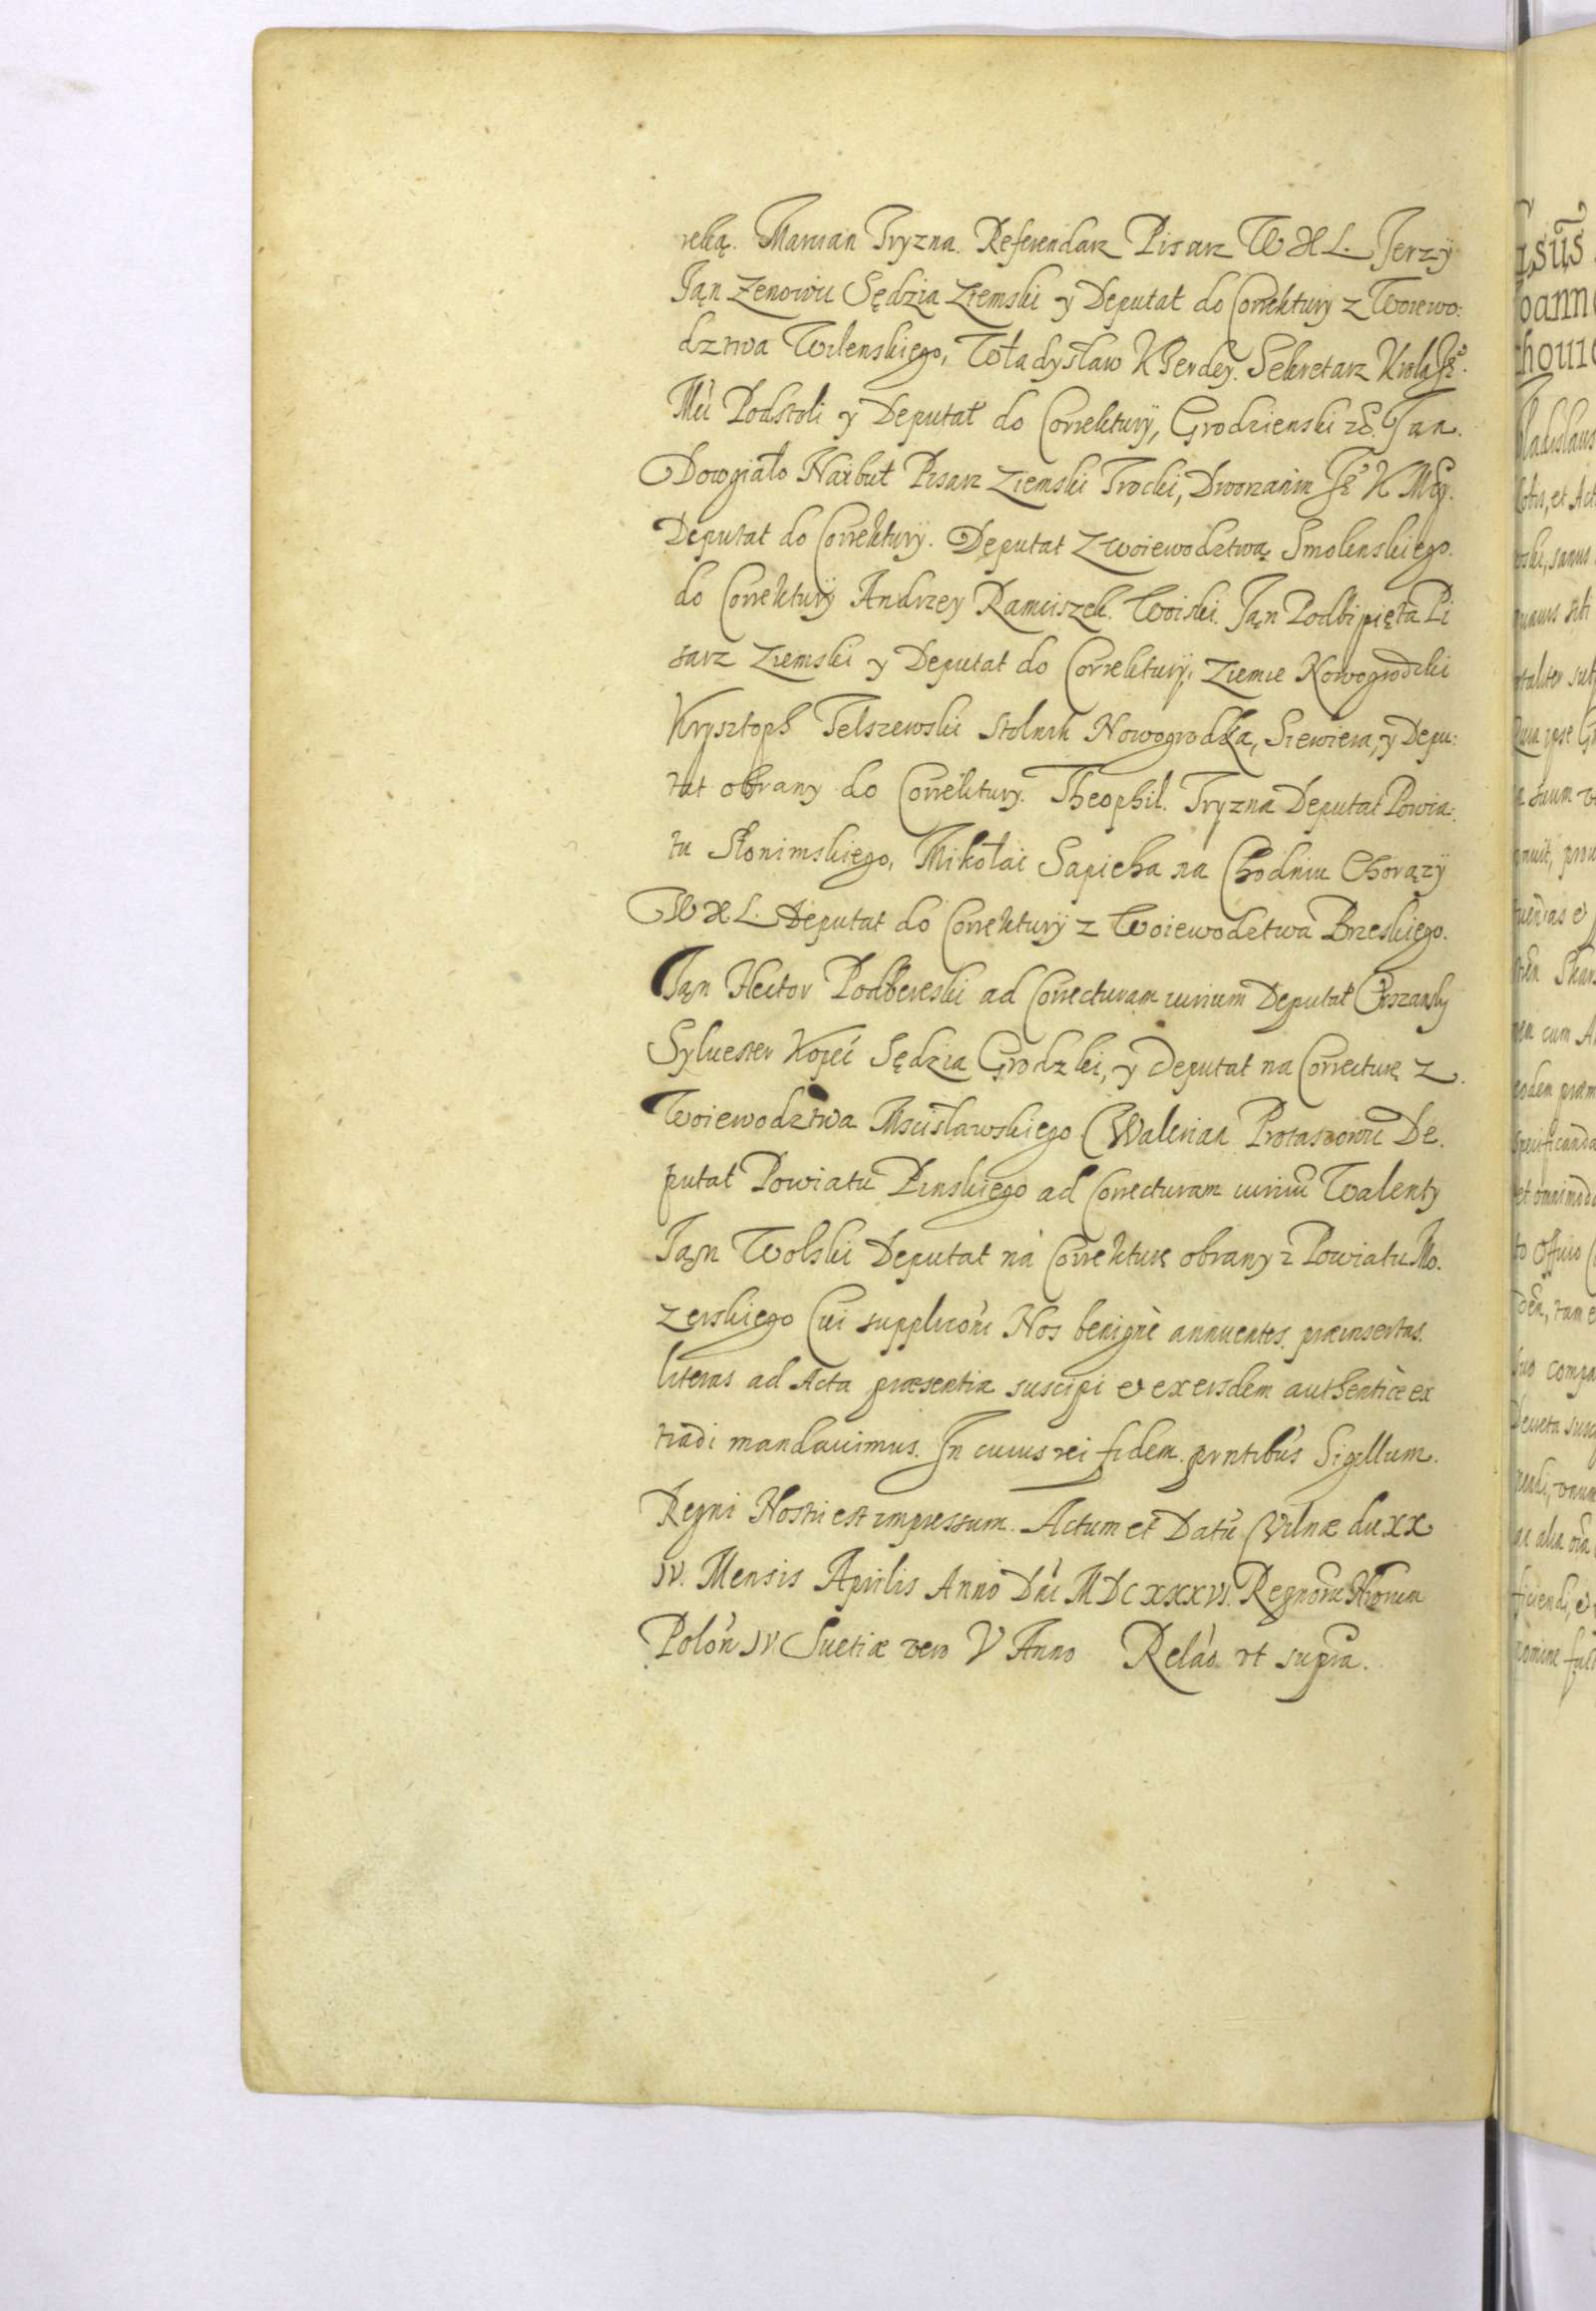 ręką. Marcian Tryzna. Referendarz Pisarz W X L. Jerzÿ
Jąn Zenowic Sędzia Ziemski y Deputat do Correktury z Woiewo:
dztwa Wilenskiego, Władysław KHerdey. Sekretarz Krola Jº.
Mci Podstoli y Deputat do Correkturÿ, Grodzienski Jan.
Dowgiało Narbut Pisarz Ziemski Trocki, Dworzanin Jº K Mcy.
Deputat do Correkturÿ. Deputat z woiewodztwą Smolenskiego.
do Correkturÿ Andrzey Ramciszek. Woiski. Jąn Podbipięta Pi
sarz Ziemski y Deputat do Correkturÿ, Ziemie Nowogrodzki
Krysztoph Telszewski Stolnik Nowogrodka, Siewiera, y Depu:
tat obrany do Correktury. Theophil. Tryzna Deputat Powia:
tu Słonimskiego, Mikołai Sapieha na Chodniu Chorązÿ
W X. L. Deputat do Correkturÿ z Woiewodztwa Brzeskiego.
Jąn Hector Podbereski ad Correcturam iurium Deputat Orszansky
Sylvester Kopeć Sędzia Grodzki, y Deputat na Correcturę z.
Woiewodztwa Mscisławskiego Walerian Protasowic De.
putat Powiatu Pinskiego ad Correcturam iuriū Walenty
Jąn Wolski Deputat na Correkturę obrany z Powiatu Mo.
zerskiego Cui supplicōni Nos benignè annuentes. præinsertas.
literas ad Acta præsentia suscipi et ex eisdem authenticè ex
tradi mandauimus. In cuius rei fidem. prntibūs Sigillum.
Regni Nostri est impressum. Actum et Datū Vilnæ die XX
IV. Mensis Aprilis Anno Dni MDCXXXVI. Regnorū Nrorum
Polon IV Suetiæ vero V Anno Relāo. vt supra.